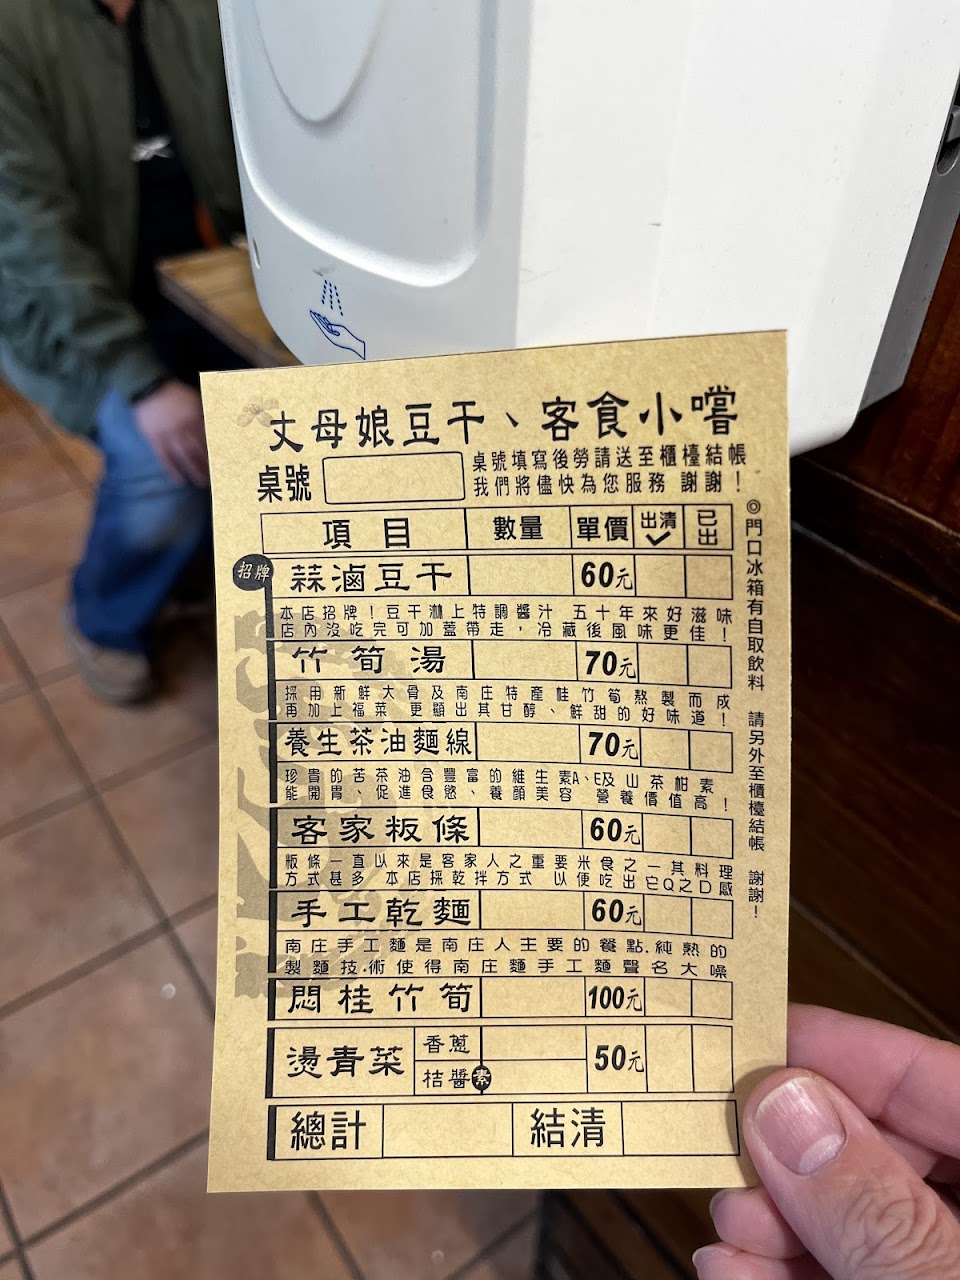 丈母娘豆干、客食小嚐
桌號
桌號填寫後勞請送至櫃檯結帳
我們將儘快為您服務 謝謝！
項目 數量 單價 出清 已出
招牌 蒜滷豆干 60元
本店招牌！豆干淋上特調醬汁 五十年來好滋味
店內沒吃完可加蓋帶走，冷藏後風味更佳！
竹筍湯 70元
採用新鮮大骨及南庄特產桂竹筍熬製而成
再加上福菜 更顯出其甘醇、鮮甜的好味道！
養生茶油麵線 70元
珍貴的苦茶油含豐富的維生素A、E及山茶柑素
能開胃、促進食慾、養顏美容 營養價值高！
客家板條 60元
粄條一直以來是客家人之重要米食之一其料理
方式甚多 本店採乾拌方式 以便吃出它Q之口感
手工乾麵 60元
南庄手工麵是南庄人主要的餐點.純熟的
製麵技.術使得南庄麵手工麵聲名大噪
悶桂竹筍 100元
燙青菜 香蔥 50元
桔醬 素
總計 結清
◎門口冰箱有自取飲料 請另外至櫃檯結帳 謝謝！